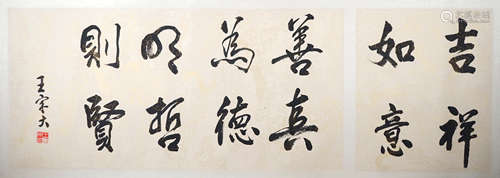 吉祥
如意
善真
為德
明哲
則賢
王宋大